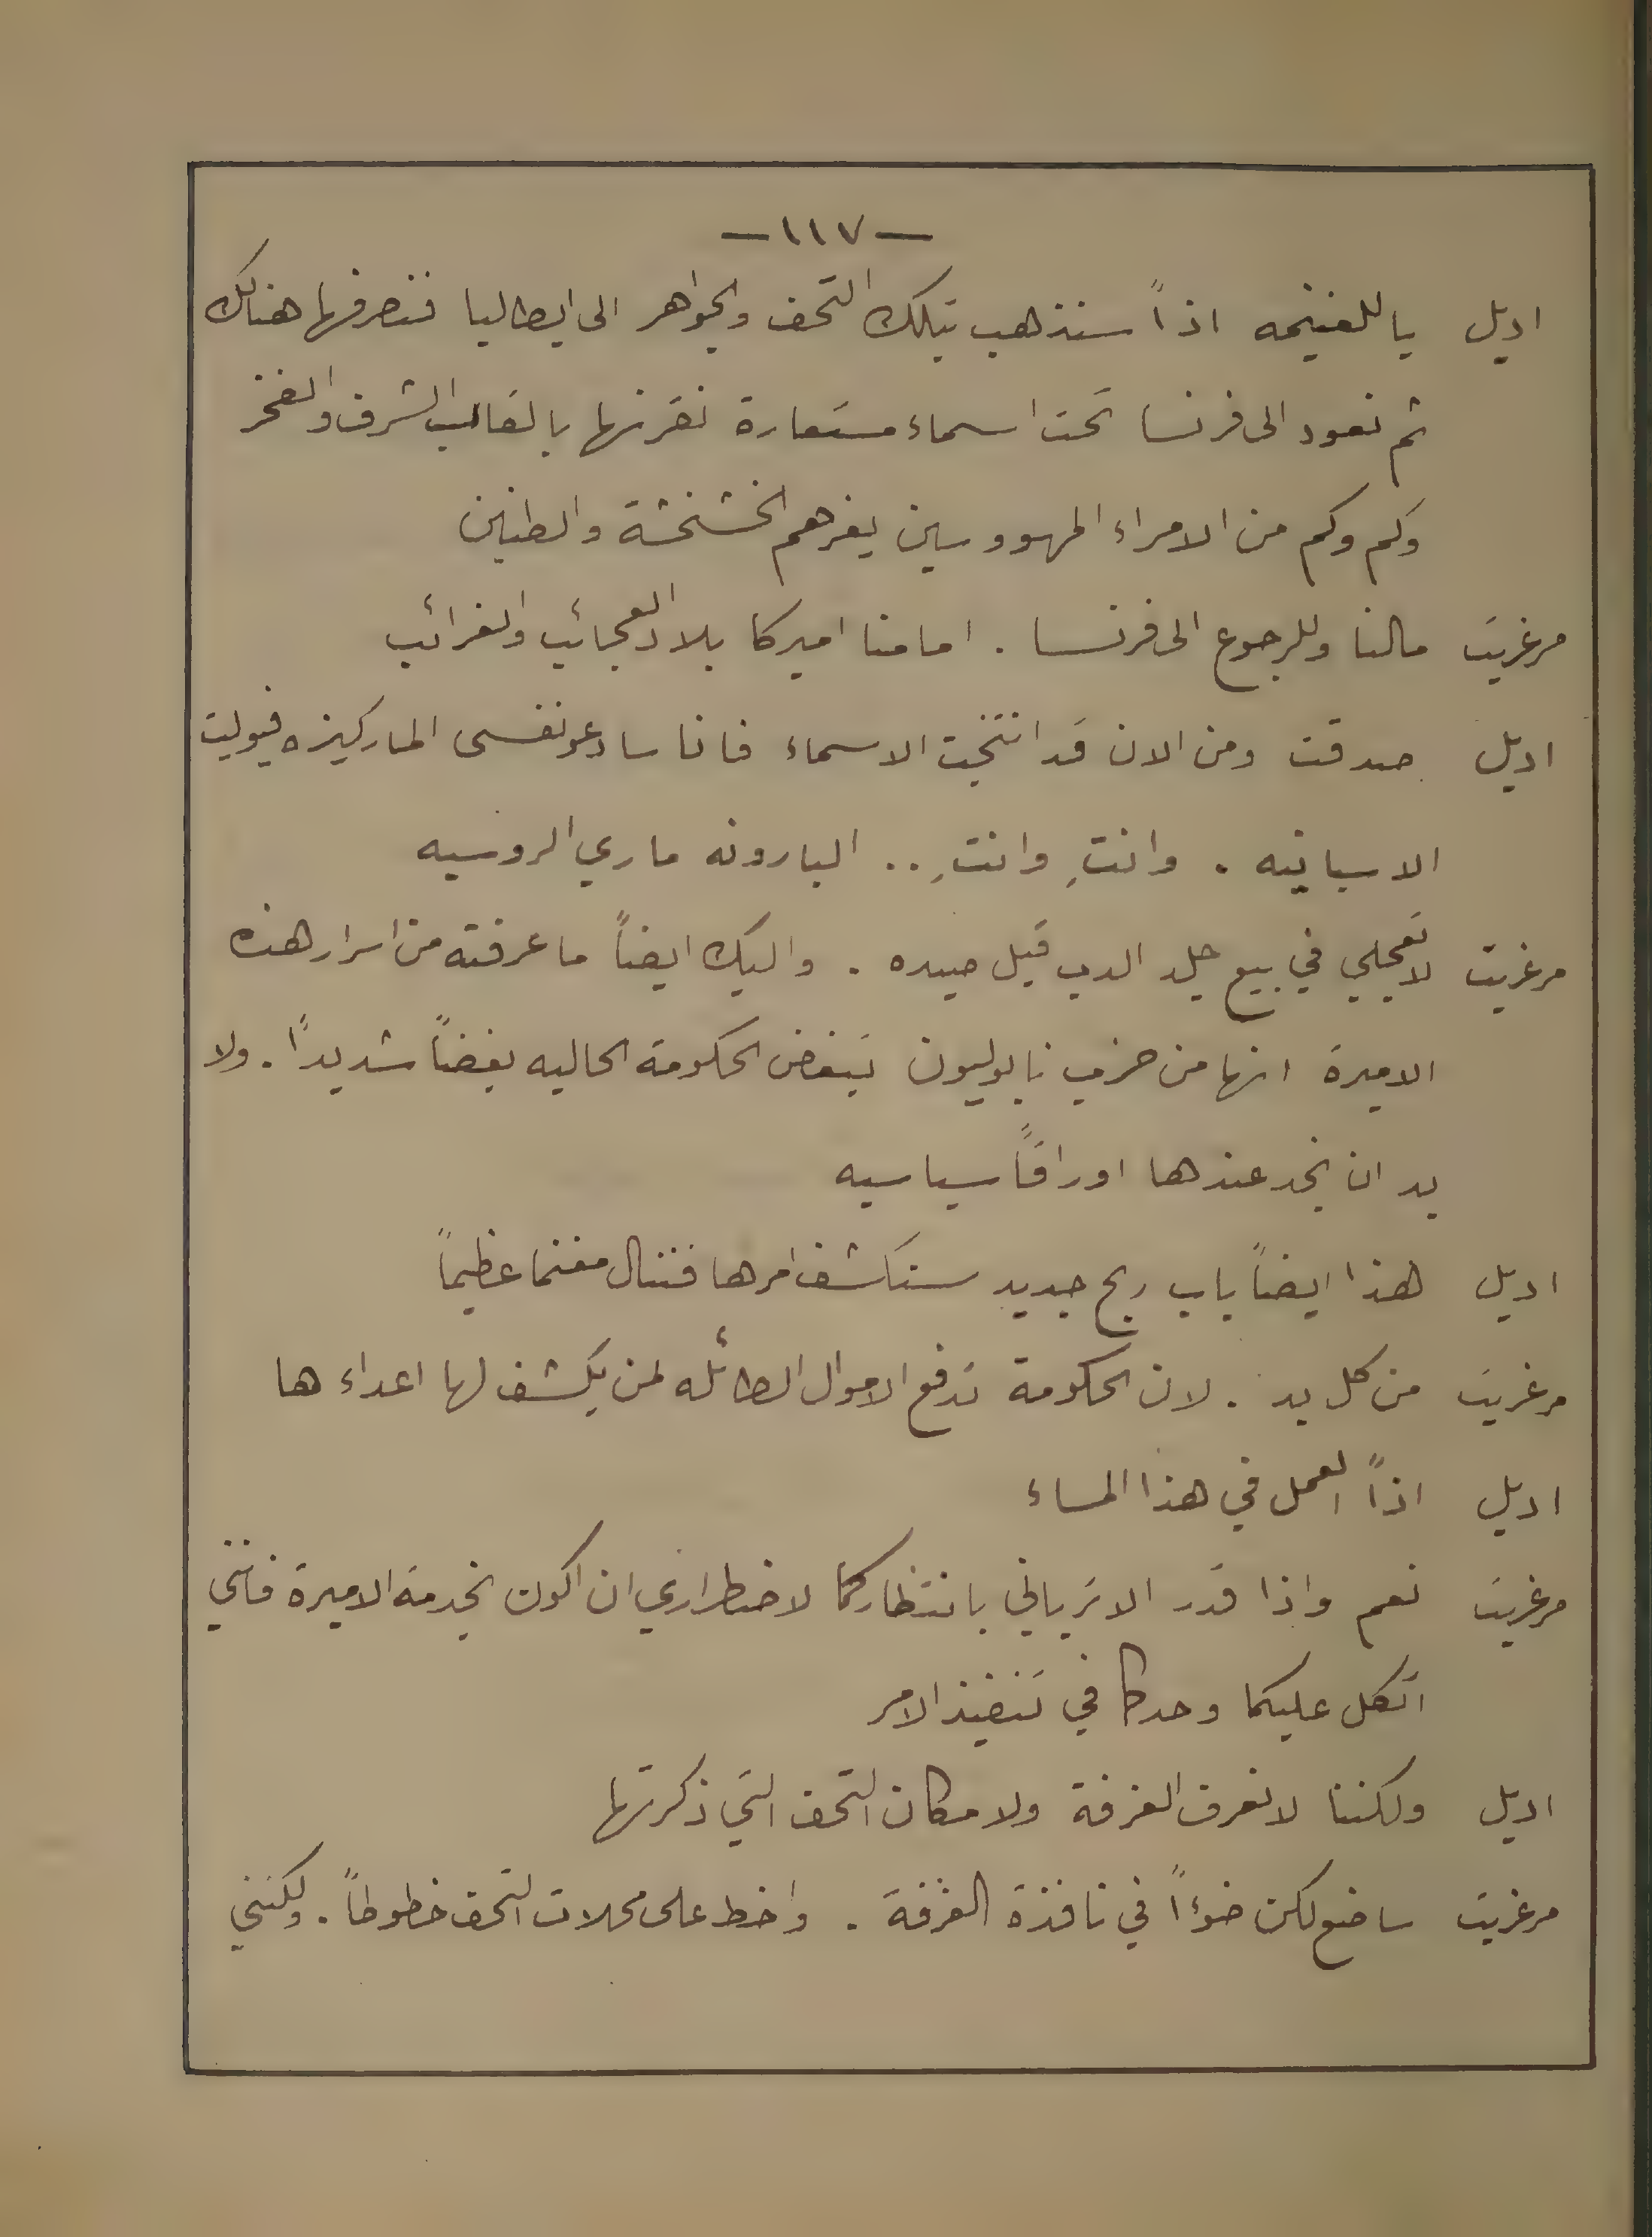 —١١٧—
اديل ياللغنيمه اذاً سنذهب بتلك التحف والجواهر الى ايطاليا فنصرفها هنالك
ثم نعود الى فرنسا تحت اسماء مستعارة نقرنها بالقاب الشرف والفخر
وكم وكم من الامراء المهووسين يغرهم الخشخشة والطنين
مرغريت مالنا وللرجوع الى فرنسا . امامنا اميركا بلاد العجائب والغرائب
اديل صدقت ومن الان قد انتخبت الاسماء فانا سادعو نفسى الماركيزه فيوليت
الاسبانيه . وانتِ وانتِ .. البارونه ماري الروسيه
مرغريت لا تعجلي في بيع جلد الدب قبل صيده . واليك ايضاً ما عرفته من اسرار هذه
الاميرة انها من حزب نابوليون تبغض الحكومة الحاليه بغضاً شديداً . ولا
بد ان نجد عندها اوراقاً سياسيه
اديل هذا ايضاً باب ربح جديد سنكشف امرها فننال مغنما عظيماً
مرغريت من كل بد . لان الحكومة تدفع الاموال الطائله لمن يكشف لها اعداءها
اديل اذاً العمل في هذا المساء
مرغريت نعم واذا قدر الا ترياني بانتظاركما لاضطراري ان اكون بخدمة الاميرة فانني
اتكل عليكما وحدكما في تنفيذ الامر
اديل ولكننا لا نعرف الغرفة ولا مكان التحف التي ذكرتها
مرغريت ساضع لكن ضوءاً في نافذة الغرفة . واخط على محلات التحف خطوطاً . ولكنني